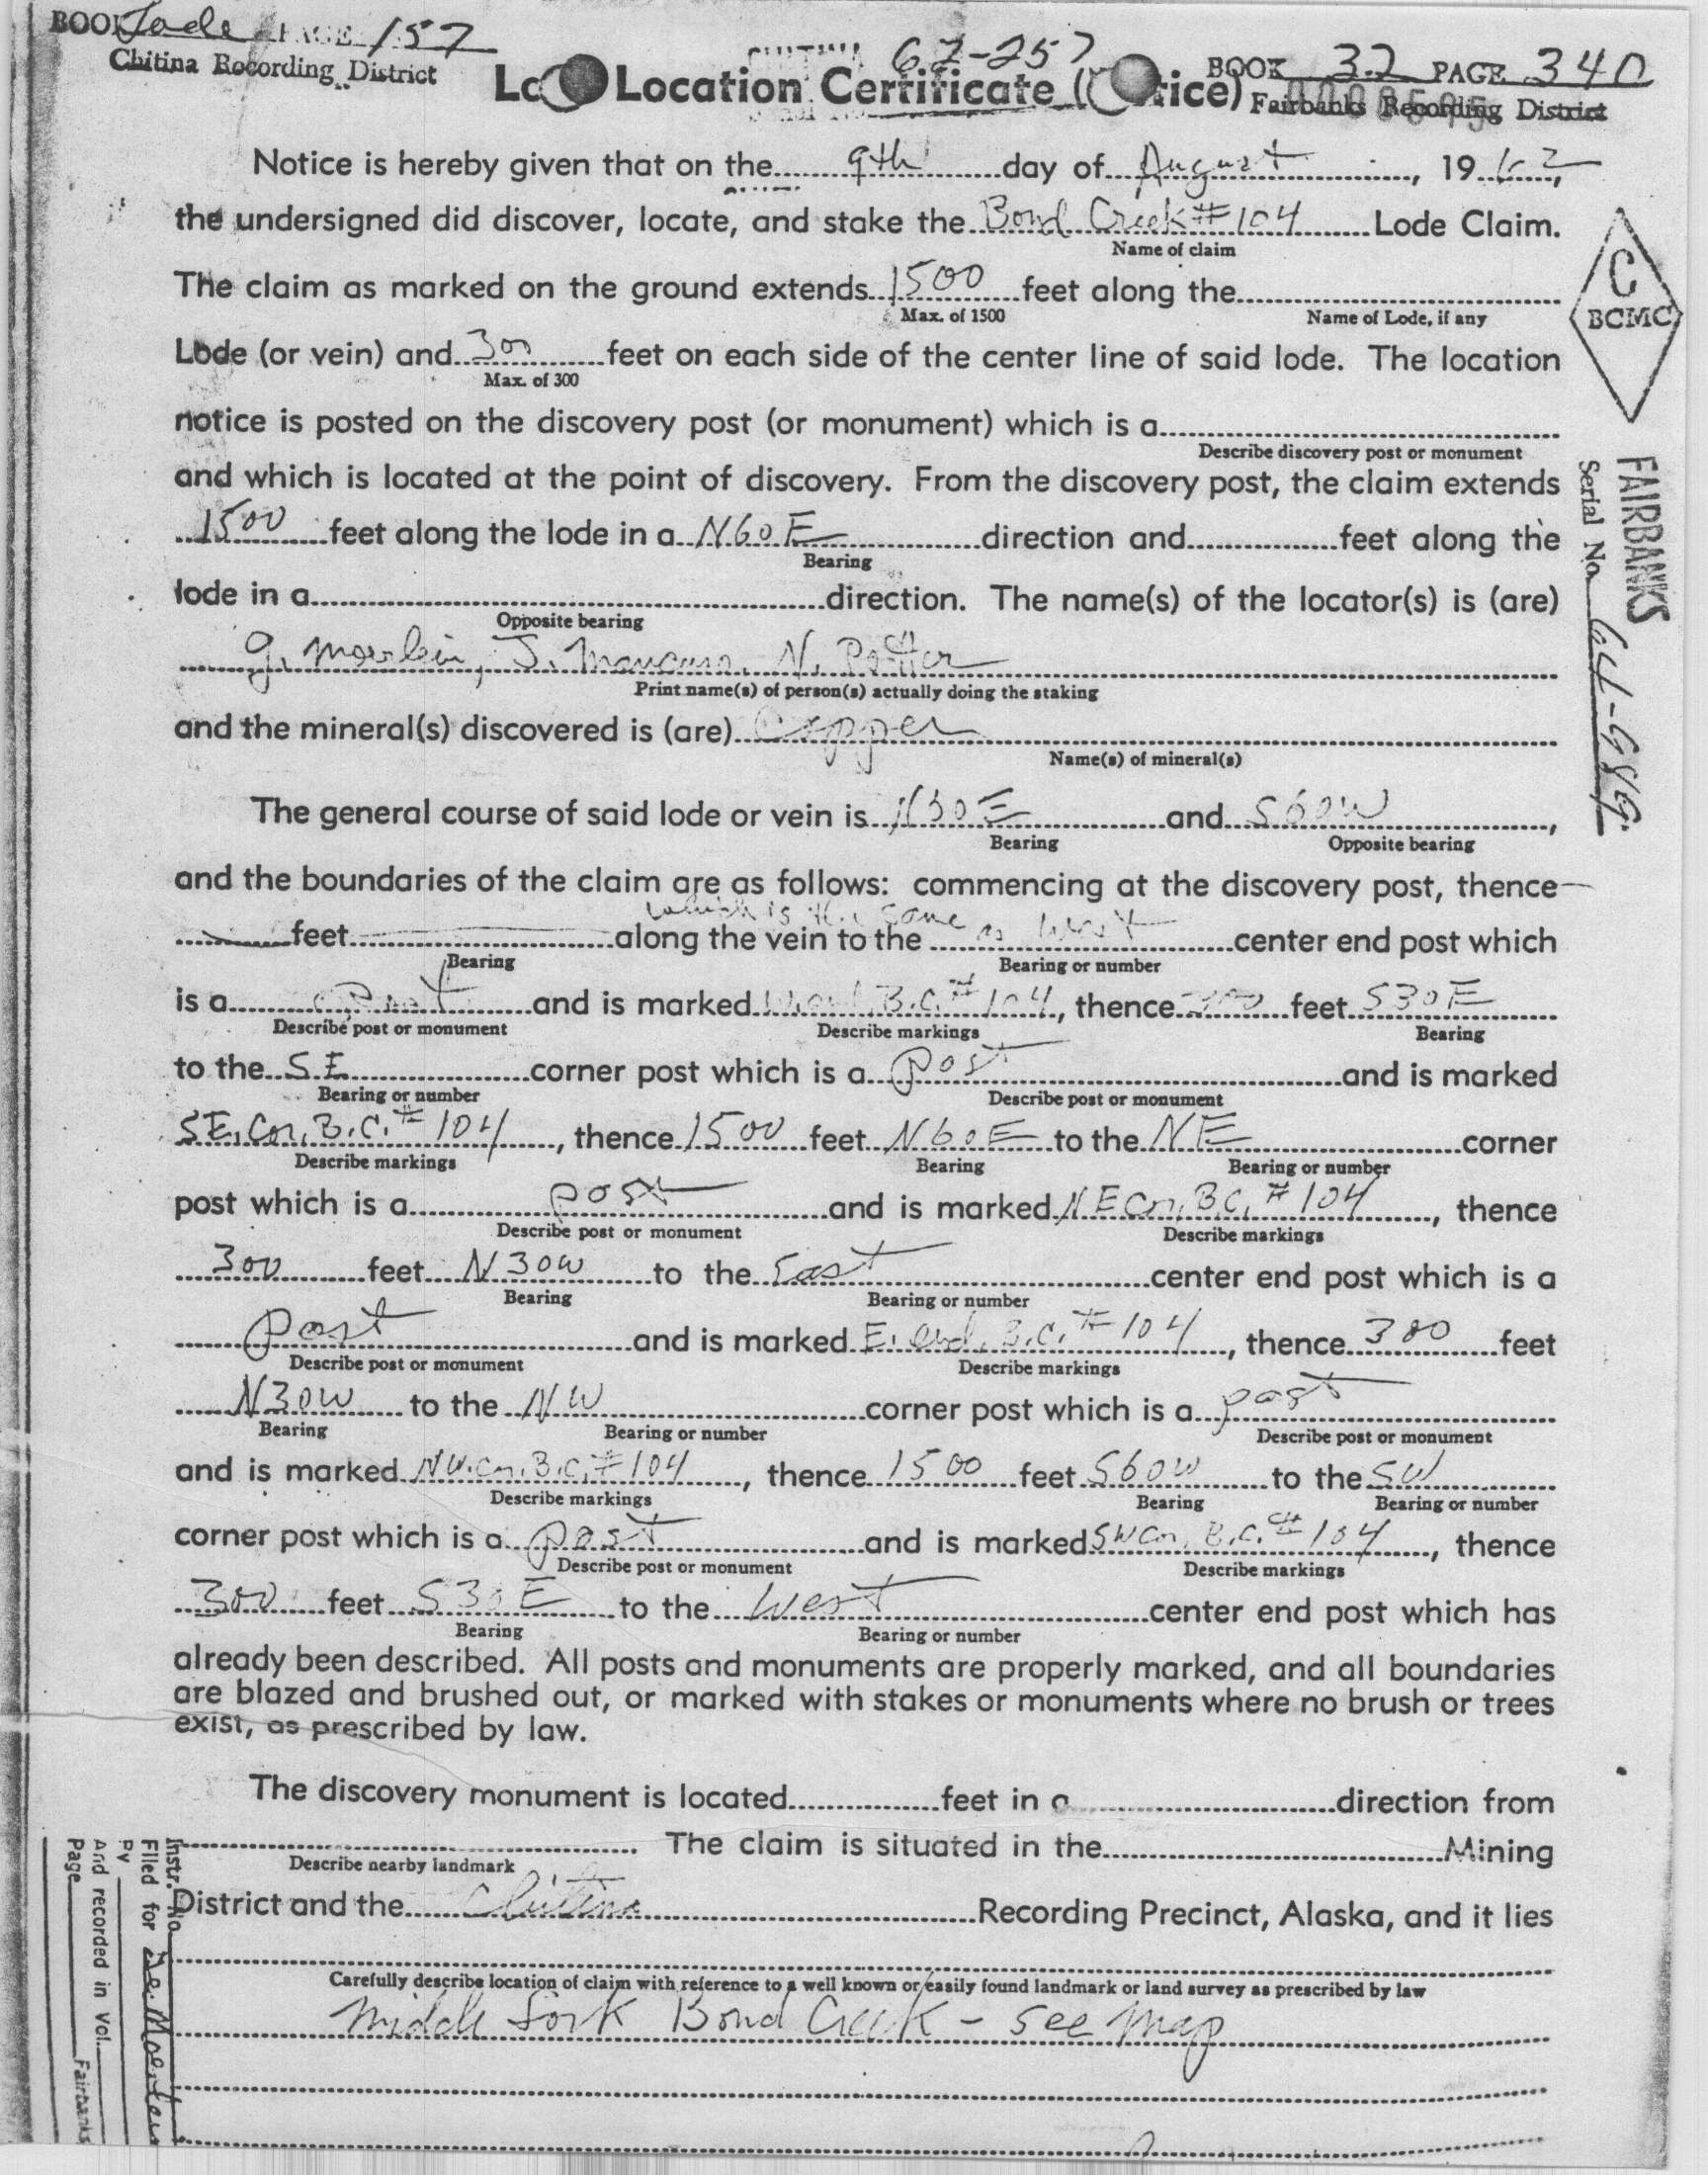 BOOK Lode PAGE 157
Chitina Recording District
CHITINA 62-257
BOOK 32 PAGE 340
Fairbanks Recording District
Location Certificate
Notice is hereby given that on the 9th day of August, 1962,
the undersigned did discover, locate, and stake the Bond Creek #104 Lode Claim.
Name of claim
The claim as marked on the ground extends 1500 feet along the
Max. of 1500 Name of Lode, if any
Lode (or vein) and 300 feet on each side of the center line of said lode. The location
Max. of 300
notice is posted on the discovery post (or monument) which is a
Describe discovery post or monument
and which is located at the point of discovery. From the discovery post, the claim extends
1500 feet along the lode in a N60E direction and feet along the
Bearing
lode in a direction. The name(s) of the locator(s) is (are)
Opposite bearing
G. Moerlein, J. Mancuso, N. Potter
Print name(s) of person(s) actually doing the staking
and the mineral(s) discovered is (are) Copper
Name(s) of mineral(s)
The general course of said lode or vein is and S60W,
Bearing Opposite bearing
and the boundaries of the claim are as follows: commencing at the discovery post, thence
which is the same
feet along the vein to the as West center end post which
Bearing Bearing or number
is a Post and is marked W. end B.C. #104, thence 300 feet S30E
Describe post or monument Describe markings Bearing
to the S.E. corner post which is a post and is marked
Bearing or number Describe post or monument
SE. Cor. B.C. #104, thence 1500 feet N60E to the NE corner
Describe markings Bearing Bearing or number
post which is a post and is marked NE Cor. B.C. #104, thence
Describe post or monument Describe markings
300 feet N30W to the East center end post which is a
Bearing Bearing or number
post and is marked E. end. B.C. #104, thence 300 feet
Describe post or monument Describe markings
N30W to the NW corner post which is a post
Bearing Bearing or number Describe post or monument
and is marked NW. Cor. B.C. #104, thence 1500 feet S60W to the SW
Describe markings Bearing Bearing or number
corner post which is a post and is marked SW Cor. B.C. #104, thence
Describe post or monument Describe markings
300 feet S30E to the West center end post which has
Bearing Bearing or number
already been described. All posts and monuments are properly marked, and all boundaries
are blazed and brushed out, or marked with stakes or monuments where no brush or trees
exist, as prescribed by law.
The discovery monument is located feet in a direction from
The claim is situated in the Mining
Describe nearby landmark
District and the Chitina Recording Precinct, Alaska, and it lies
Carefully describe location of claim with reference to a well known or easily found landmark or land survey as prescribed by law
Middle fork Bond Creek - see map
C
BCMC
FAIRBANKS
Serial No.
Instr. No.
Filed for Ge. Moerlein
By
And recorded in Vol.
Page Fairbanks